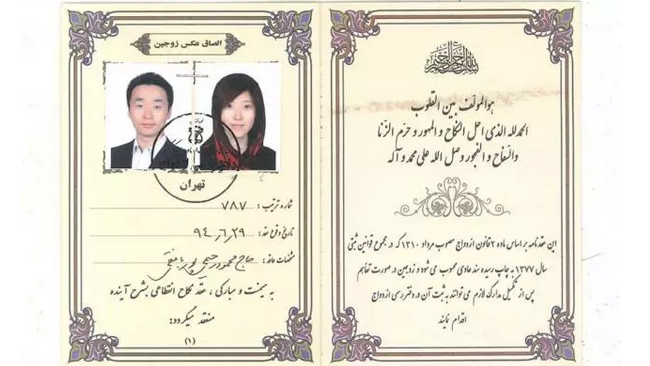 هوالمؤلف بین القلوب
الحمدلله الذی احل النکاح و المهور و حرم الزنا
والسفاح و الفجور وصل الله علی محمد و آله
این عقدنامه بر اساس ماده ۲ قانون ازدواج مصوب مرداد ۱۳۱۰ که در مجموع قوانین ثبتی
سال ۱۳۷۷ به چاپ رسیده سند عادی محسوب می شود و زوجین در صورت تفاهم
پس از تکمیل مدارک لازم می توانند به ثبت آن در دفتر رسمی ازدواج
اقدام نمایند
الصاق عکس زوجین
تهران
شماره ترتیب : ۷۸۷
تاریخ وقوع عقد : ۹۴٫۶٫۲۹
مشخصات عاقد : حاج محمود رحیمی
به میمنت و مبارکی ، عقد نکاح انقطاعی بشرح آینده
منعقد میگردد:
(۱)